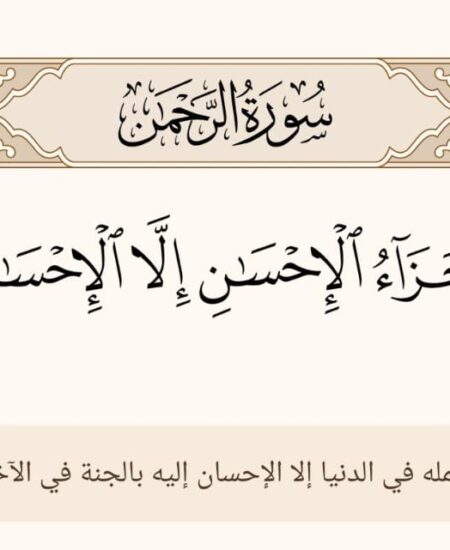 سُورَةُ الرَّحْمَٰن
جَزَآءُ ٱلْإِحْسَـٰنِ إِلَّا ٱلْإِحْسَـٰ
مله في الدنيا إلا الإحسان إليه بالجنة في الآخ